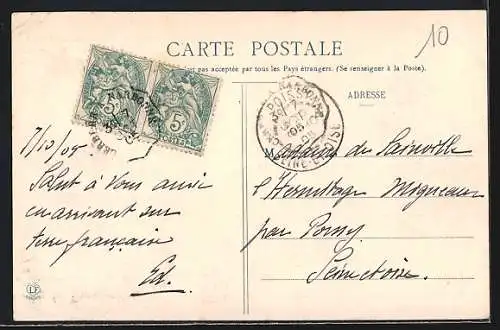 CARTE POSTALE
10
pas acceptée par tous les Pays étrangers. (Se renseigner à la Poste).
ADRESSE
5c 5c
7/10/05
Salut à vous aussi
en arrivant sur
terre française
Ed.
NARBONNE
POISSY
SEINE-ET-OISE
Madame de Sainville
l'Hermitage Migneaux
par Poissy
Seine et oise.